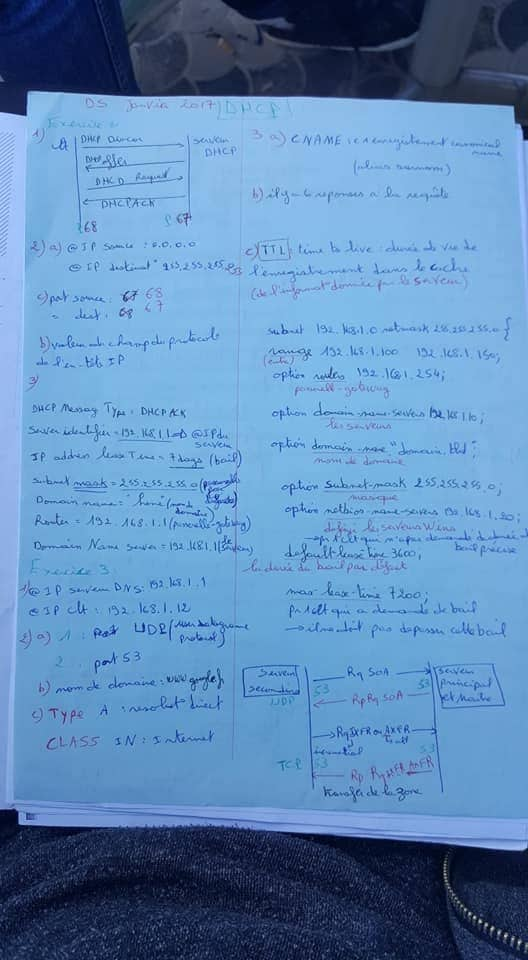 DS Janvier 2017 DHCP
Exercice 1
1)
DHCP Discover
serveur DHCP
DHCP offer
DHCP Request
DHCPACK
68 67
2) a) @IP source : 0.0.0.0
@IP destinat° 255.255.255.255
c) port source : 67 68
= dest : 68 67
b) valeur du champ du protocole
de l'en-tête IP
3)
DHCP Message Type = DHCPACK
Server identifier = 192.168.1.1 @IP du serveur
IP address lease Time = 7 days (bail)
Subnet mask = 255.255.255.0
Domain name = "home" (nom de domaine)
Router = 192.168.1.1 (passerelle-gateway)
Domain Name server = 192.168.1.1
Exercice 3
1) @IP serveur DNS : 192.168.1.1
@IP clt : 192.168.1.12
2) a) 1 : UDP (user datagramme
protocol)
2 : port 53
b) nom de domaine : www.google.fr
c) Type A : resolut° direct
CLASS IN : Internet
3 a) CNAME : enregistrement canonical
name
(alias surnom)
b) il y a 6 reponses à la requête
c) TTL : time to live : durée de vie de
l'enregistrement dans le cache
(de l'informat° donnée par le serveur)
subnet 192.168.1.0 netmask 255.255.255.0 {
range 192.168.1.100 192.168.1.150;
option routers 192.168.1.254;
passerelle-gateway
option domain-name-servers 192.168.1.10;
les serveurs
option domain-name "domain.tld";
nom de domaine
option subnet-mask 255.255.255.0;
masque
option netbios-name-servers 192.168.1.20;
défini les serveurs Wins
pr 1 clt qui n'a pas demandé de durée de
bail précise
default-lease-time 3600;
la durée du bail par défaut
max-lease-time 7200;
pr 1 clt qui a demandé de bail
→ il ne doit pas depasser cette bail
Serveur
secondaire
Rq SOA
serveur
principal
53 53
UDP
Rp Rq SOA
Rq IXFR ou AXFR
53
TCP 53
Rp Rq IXFR AXFR
transfer de la zone